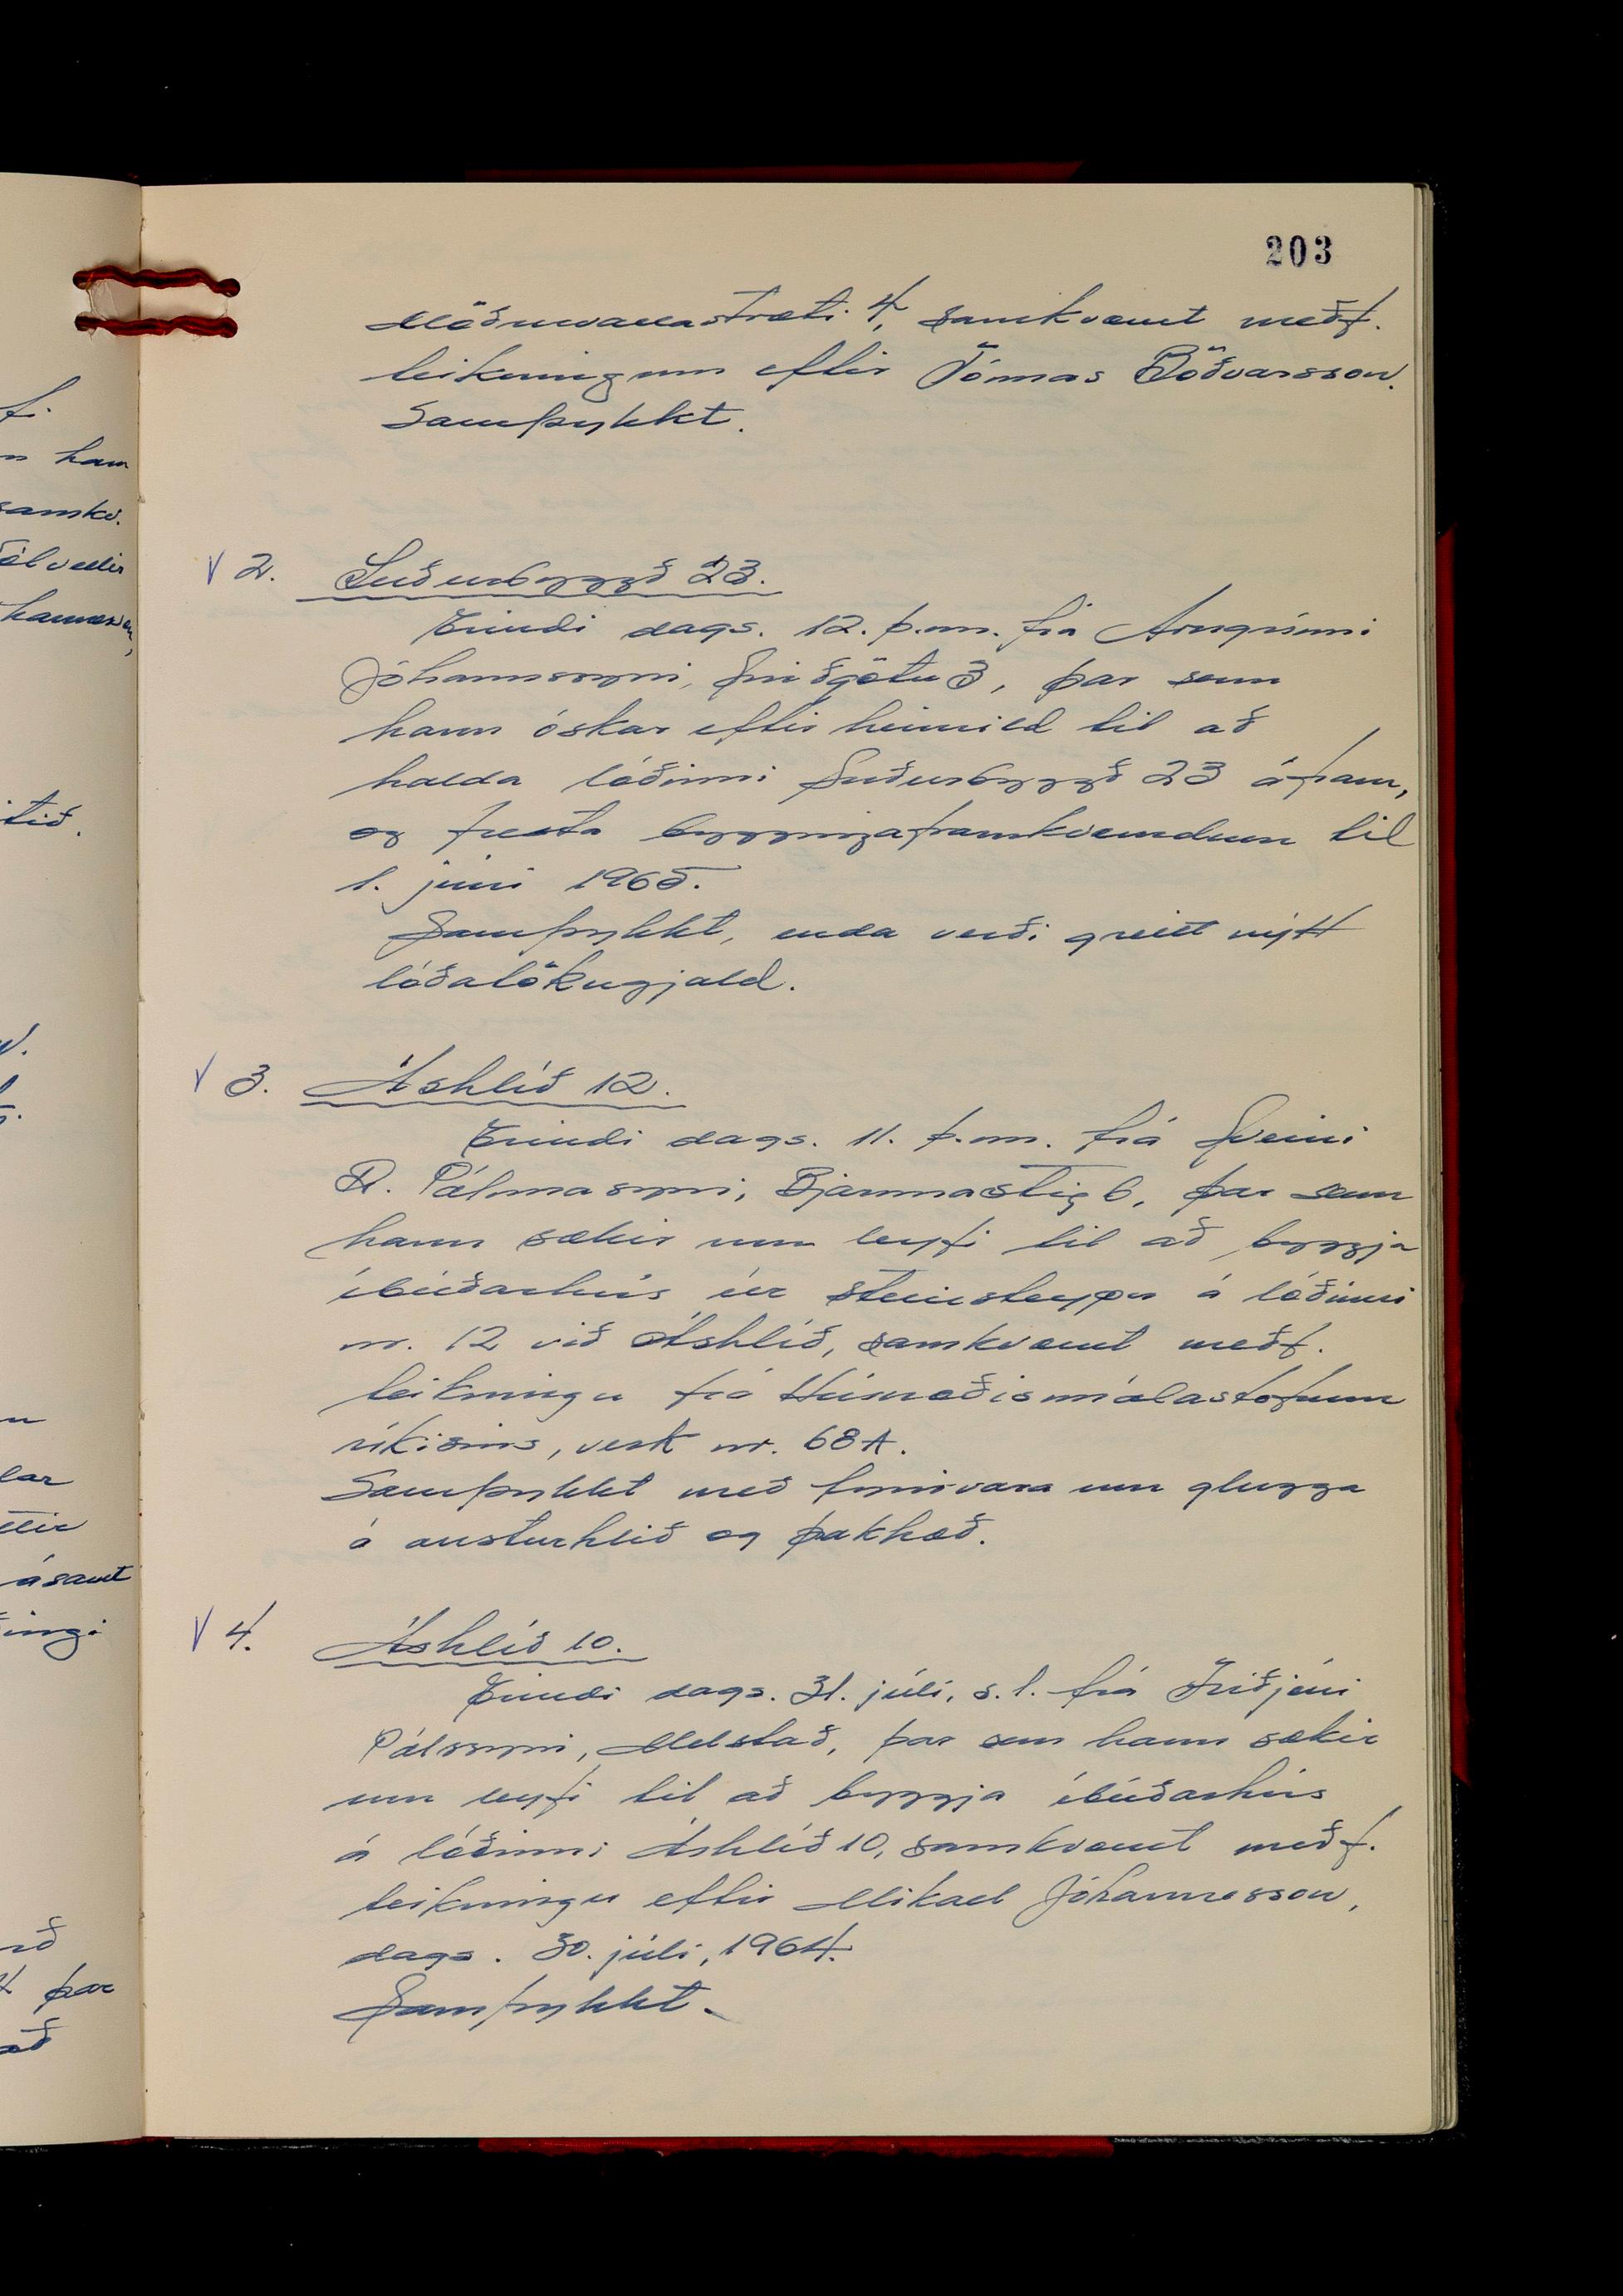 203
Möðruvallastræti 4, samkvæmt meðf.
teikningum eftir Tómas Böðvarsson.
Samþykkt.
V 2. Suðurbyggð 23.
Erindi dags. 12. þ.m. frá Arngrími
Jóhannssyni, 3, þar sem
hann óskar eftir heimild til að
halda lóðinni Suðurbyggð 23 áfram,
og fresta byggingaframkvæmdum til
1. júní 1965.
Samþykkt, enda verði greitt nýtt
lóðatökugjald.
V 3. Áshlíð 12.
Erindi dags. 11. þ.m. frá Sveini
R. Pálmasyni, Bjarmastíg 6, þar sem
hann sækir um leyfi til að byggja
íbúðarhús úr steinsteypu á lóðinni
nr. 12 við Áshlíð, samkvæmt meðf.
teikningu frá Húsnæðismálastofnun
ríkisins, verk nr. 68A.
Samþykkt með fyrirvara um glugga
á austurhlið og þakhæð.
V 4. Áshlíð 10.
Erindi dags. 31. júlí, s.l. frá Friðjóni
Pálssyni, Melstað, þar sem hann sækir
um leyfi til að byggja íbúðarhús
á lóðinni Áshlíð 10, samkvæmt meðf.
teikningu eftir Mikael Jóhannesson,
dags. 30. júlí, 1964.
Samþykkt.